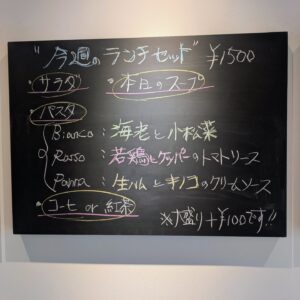 "今週のランチセット" ¥1500
・サラダ ・本日のスープ
・パスタ
Bianco:海老と小松菜
Rosso:若鶏とケッパーのトマトソース
Panna:生ハムとキノコのクリームソース
・コーヒー or 紅茶
※大盛り+¥100です!!